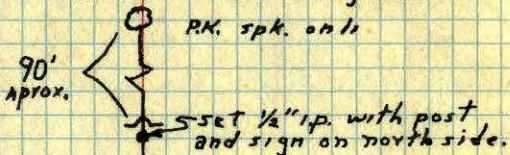 P.K. spk. on
90'
Aprox.
set 1/2" i.p. with post
and sign on north side.